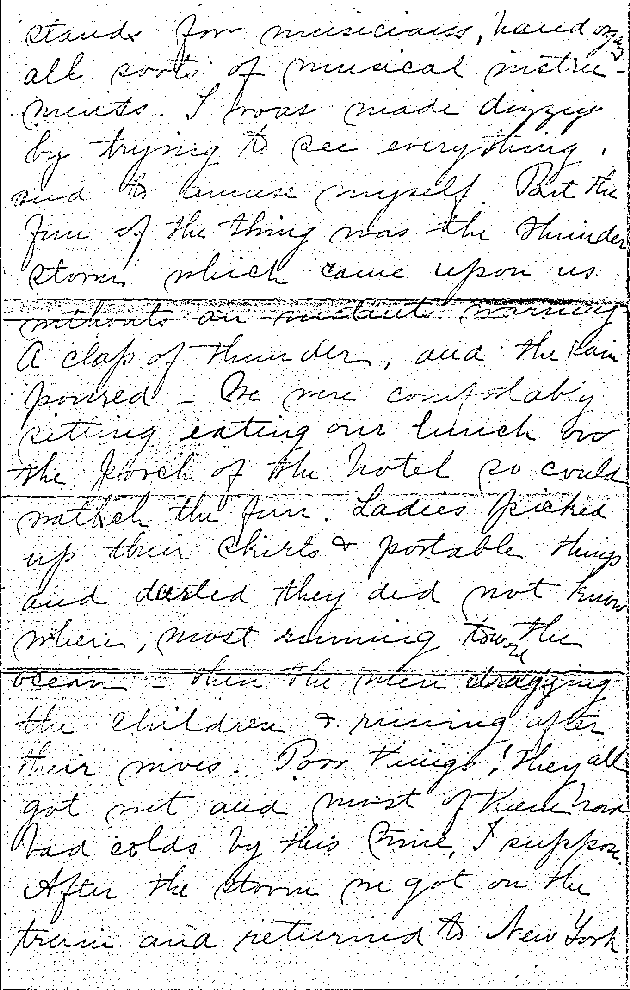 stands for musicians, hand organs
all sorts of musical instru-
ments. I was made dizzy
by trying to see everything,
and to amuse myself. But the
fun of the thing was the thunder
storm which came upon us
without an instant warning
A clap of thunder, and the rain
poured – We were comfortably
sitting eating our lunch on
the porch of the hotel so could
watch the fun. Ladies picked
up their skirts & portable things
and darted they did not know
where, most running toward the
ocean – then the men dragging
the children & running after
their wives. Poor things! they all
got wet and most of them have
bad colds by this time, I suppose.
After the storm we got on the
train and returned to New York